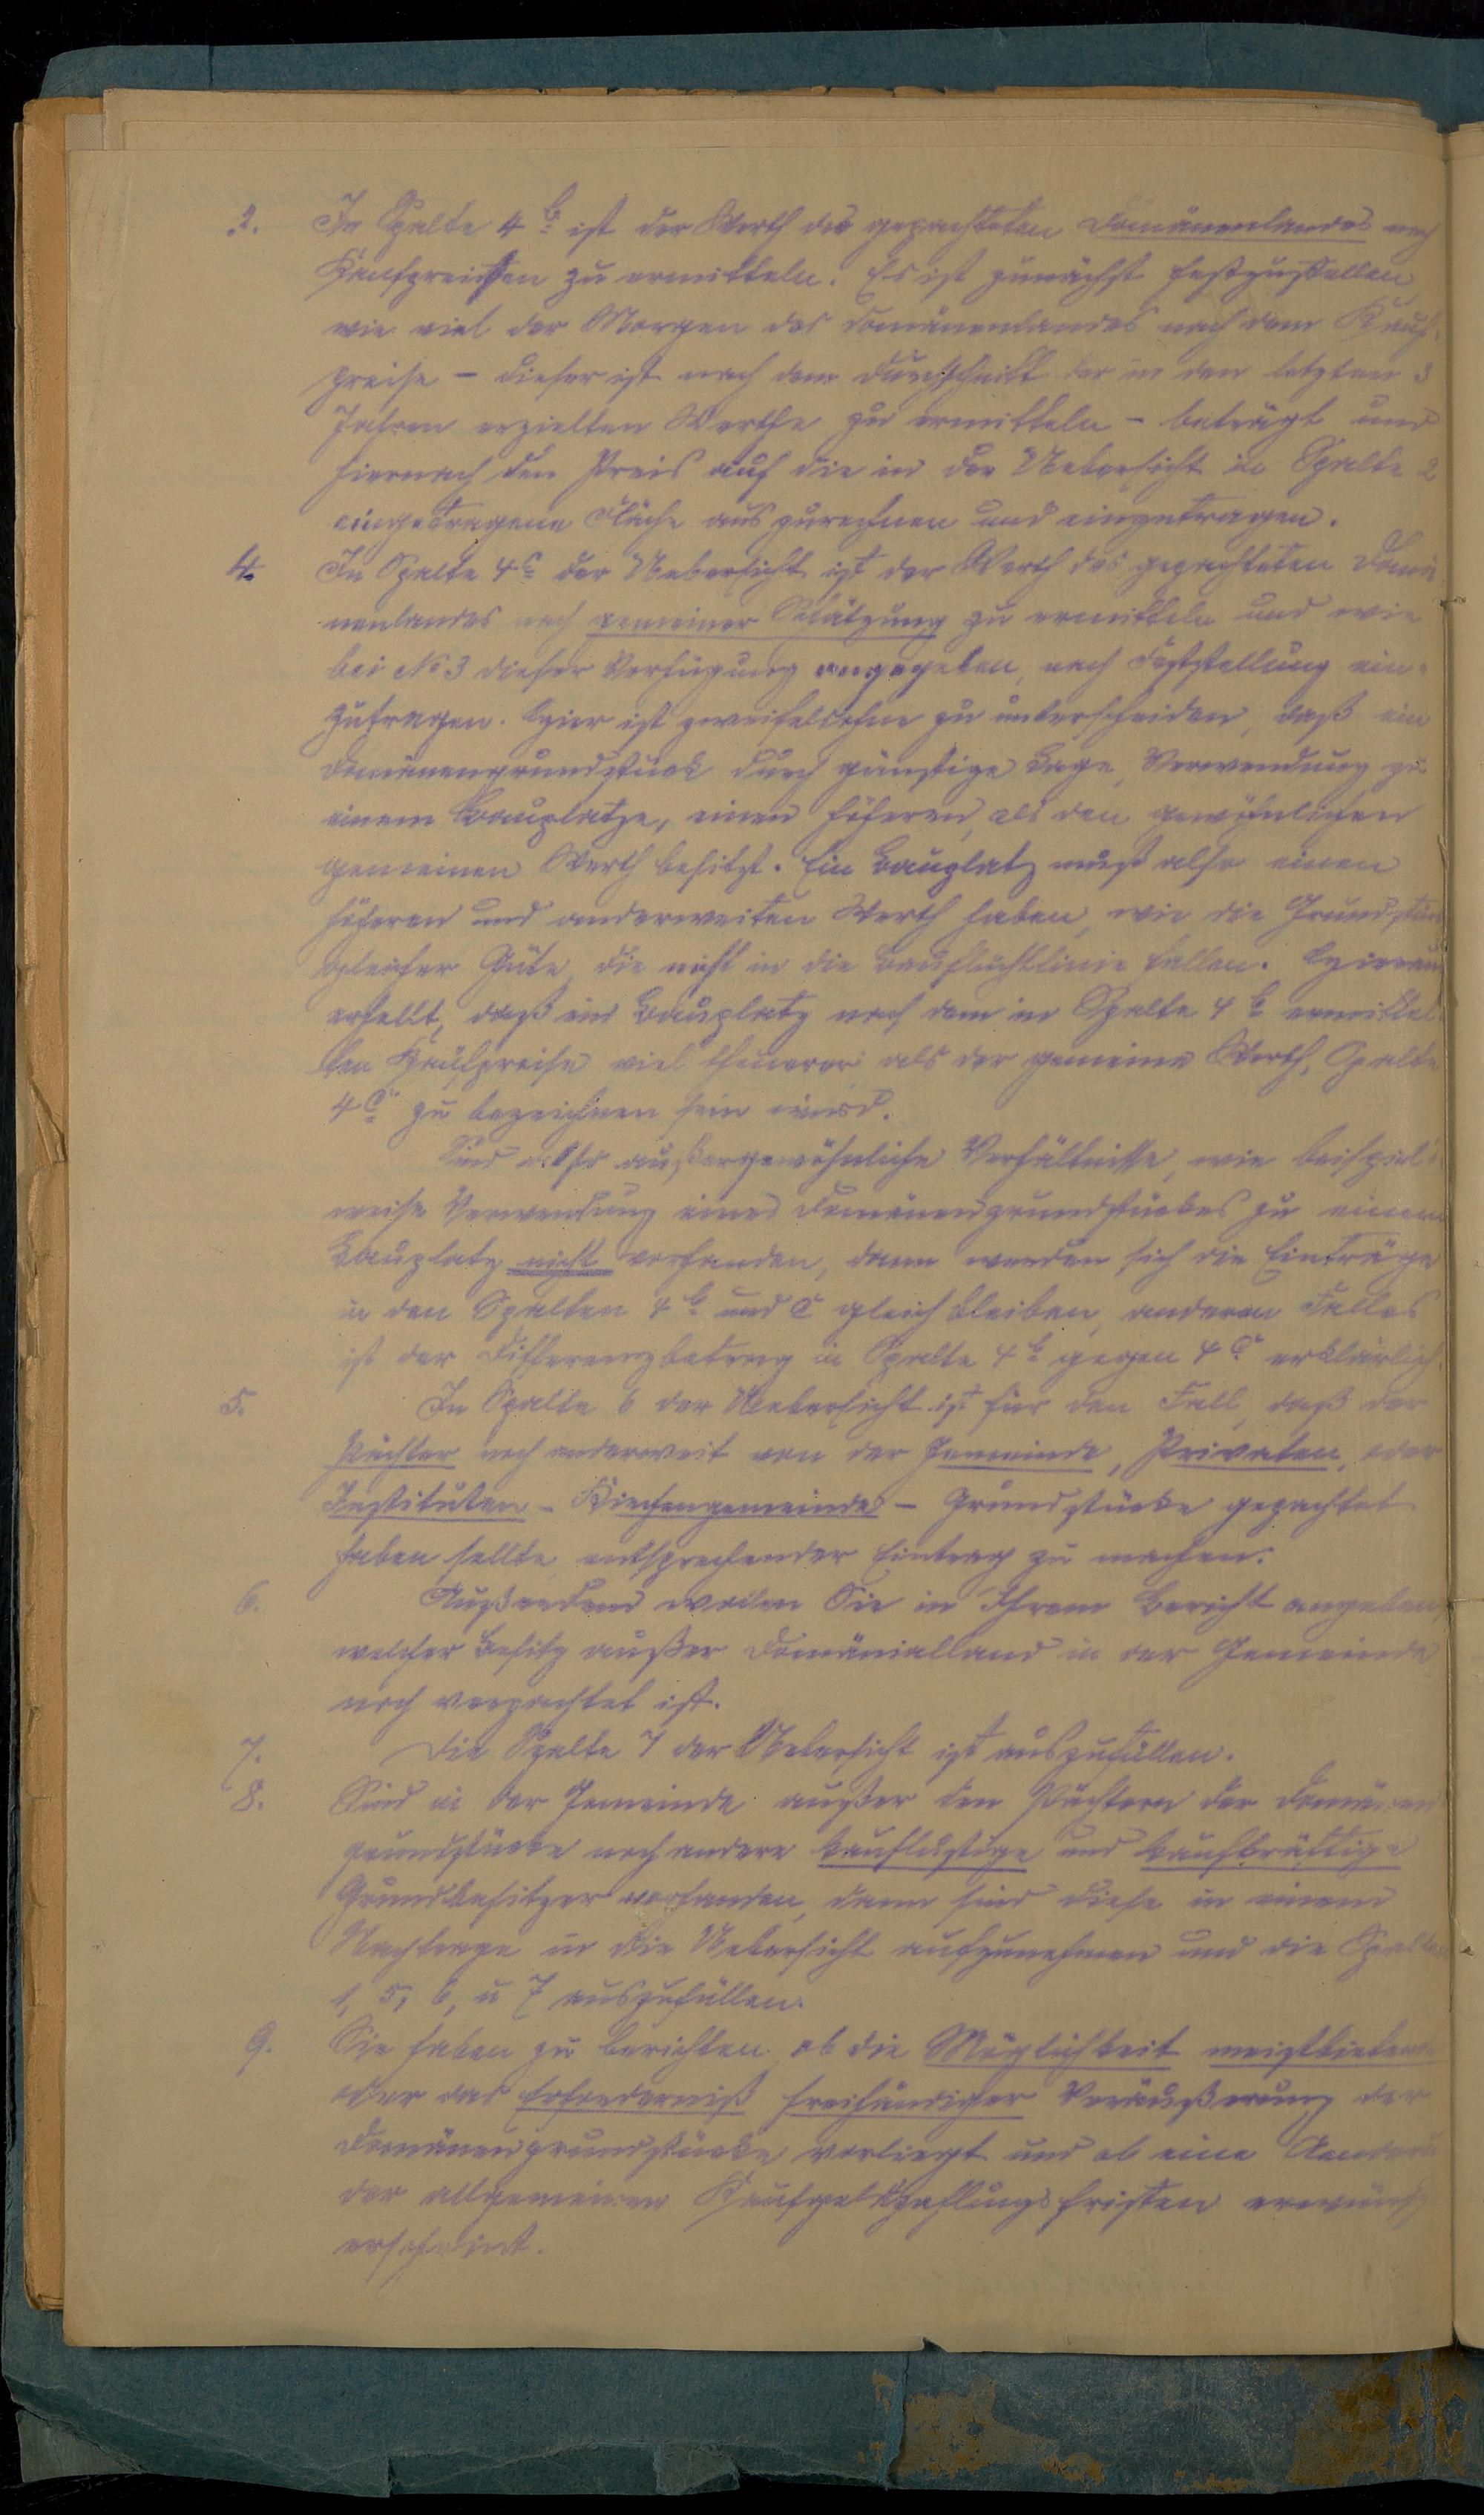 3. In Spalte 4 b ist der Werth des gepachteten Domänenlandes nach
Kaufpreisen zu ermitteln. Es ist zunächst festzustellen,
wie viel der Morgen des Domänenlandes nach dem Kauf-
preise – dieser ist nach dem Durchschnitt der in den letzten 3
Jahren erzielten Werthe zu ermitteln – beträgt und
hiernach den Preis auf die in der Uebersicht in Spalte 2
eingetragene Fläche auszurechnen und einzutragen.
4. In Spalte 4 c der Uebersicht ist der Werth des gepachteten Domä
nenlandes nach gemeiner Schätzung zu ermitteln und wie
bei No 3 dieser Verfügung angegeben, nach Feststellung ein-
zutragen. Hier ist zweifelsohne zu unterscheiden, daß ein
Domänengrundstück durch günstige Lage, Verwendung zu
einem Bauplatze, einen höheren, als den gewöhnlichen
gemeinen Werth besitzt. Ein Bauplatz muß also einen
höheren und anderweiten Werth haben, wie die Grundstück
gleicher Güte, die nicht in die Baufluchtlinie fallen. Hieraus
erhellt, daß ein Bauplatz nach dem in Spalte 4 b ermittel
ten Kaufpreise viel theuerer als der gemeine Werth, Spalte
4 c zu bezeichnen sein wird.
Sind außergewöhnliche Verhältnisse, wie beispiels
weise Verwendung eines Domänengrundstückes zu einem
Bauplatz nicht vorhanden, dann werden sich die Einträge
in den Spalten 4 b und c gleich bleiben, anderen Falles
ist der Differenzbetrag in Spalte 4 b gegen 4 c erklärlich.
5. In Spalte 6 der Uebersicht ist für den Fall, daß der
Pächter noch anderweit von der Gemeinde, Privaten, oder
Instituten – Kirchengemeinde – Grundstücke gepachtet
haben sollte, entsprechender Eintrag zu machen.
6. Außerdem wollen Sie in Ihrem Bericht angeben,
welcher Besitz außer Domänialland in der Gemeinde
noch verpachtet ist.
7. Die Spalte 7 der Uebersicht ist auszufüllen.
8. Sind in der Gemeinde außer den Pächtern der Domänen
grundstücke noch andere kauflustige und kaufkräftige
Grundbesitzer vorhanden, dann sind diese in einem
Nachtrage in die Uebersicht aufzunehmen und die Spalten
1, 5, 6, u 7 auszufüllen.
9. Sie haben zu berichten ob die Möglichkeit meistbietend
oder das Erforderniß freihändiger Veräußerung der
Domänengrundstücke vorliegt und ob eine Aenderu
der allgemeinen Kaufgeldzahlungsfristen erwünscht
erscheint.